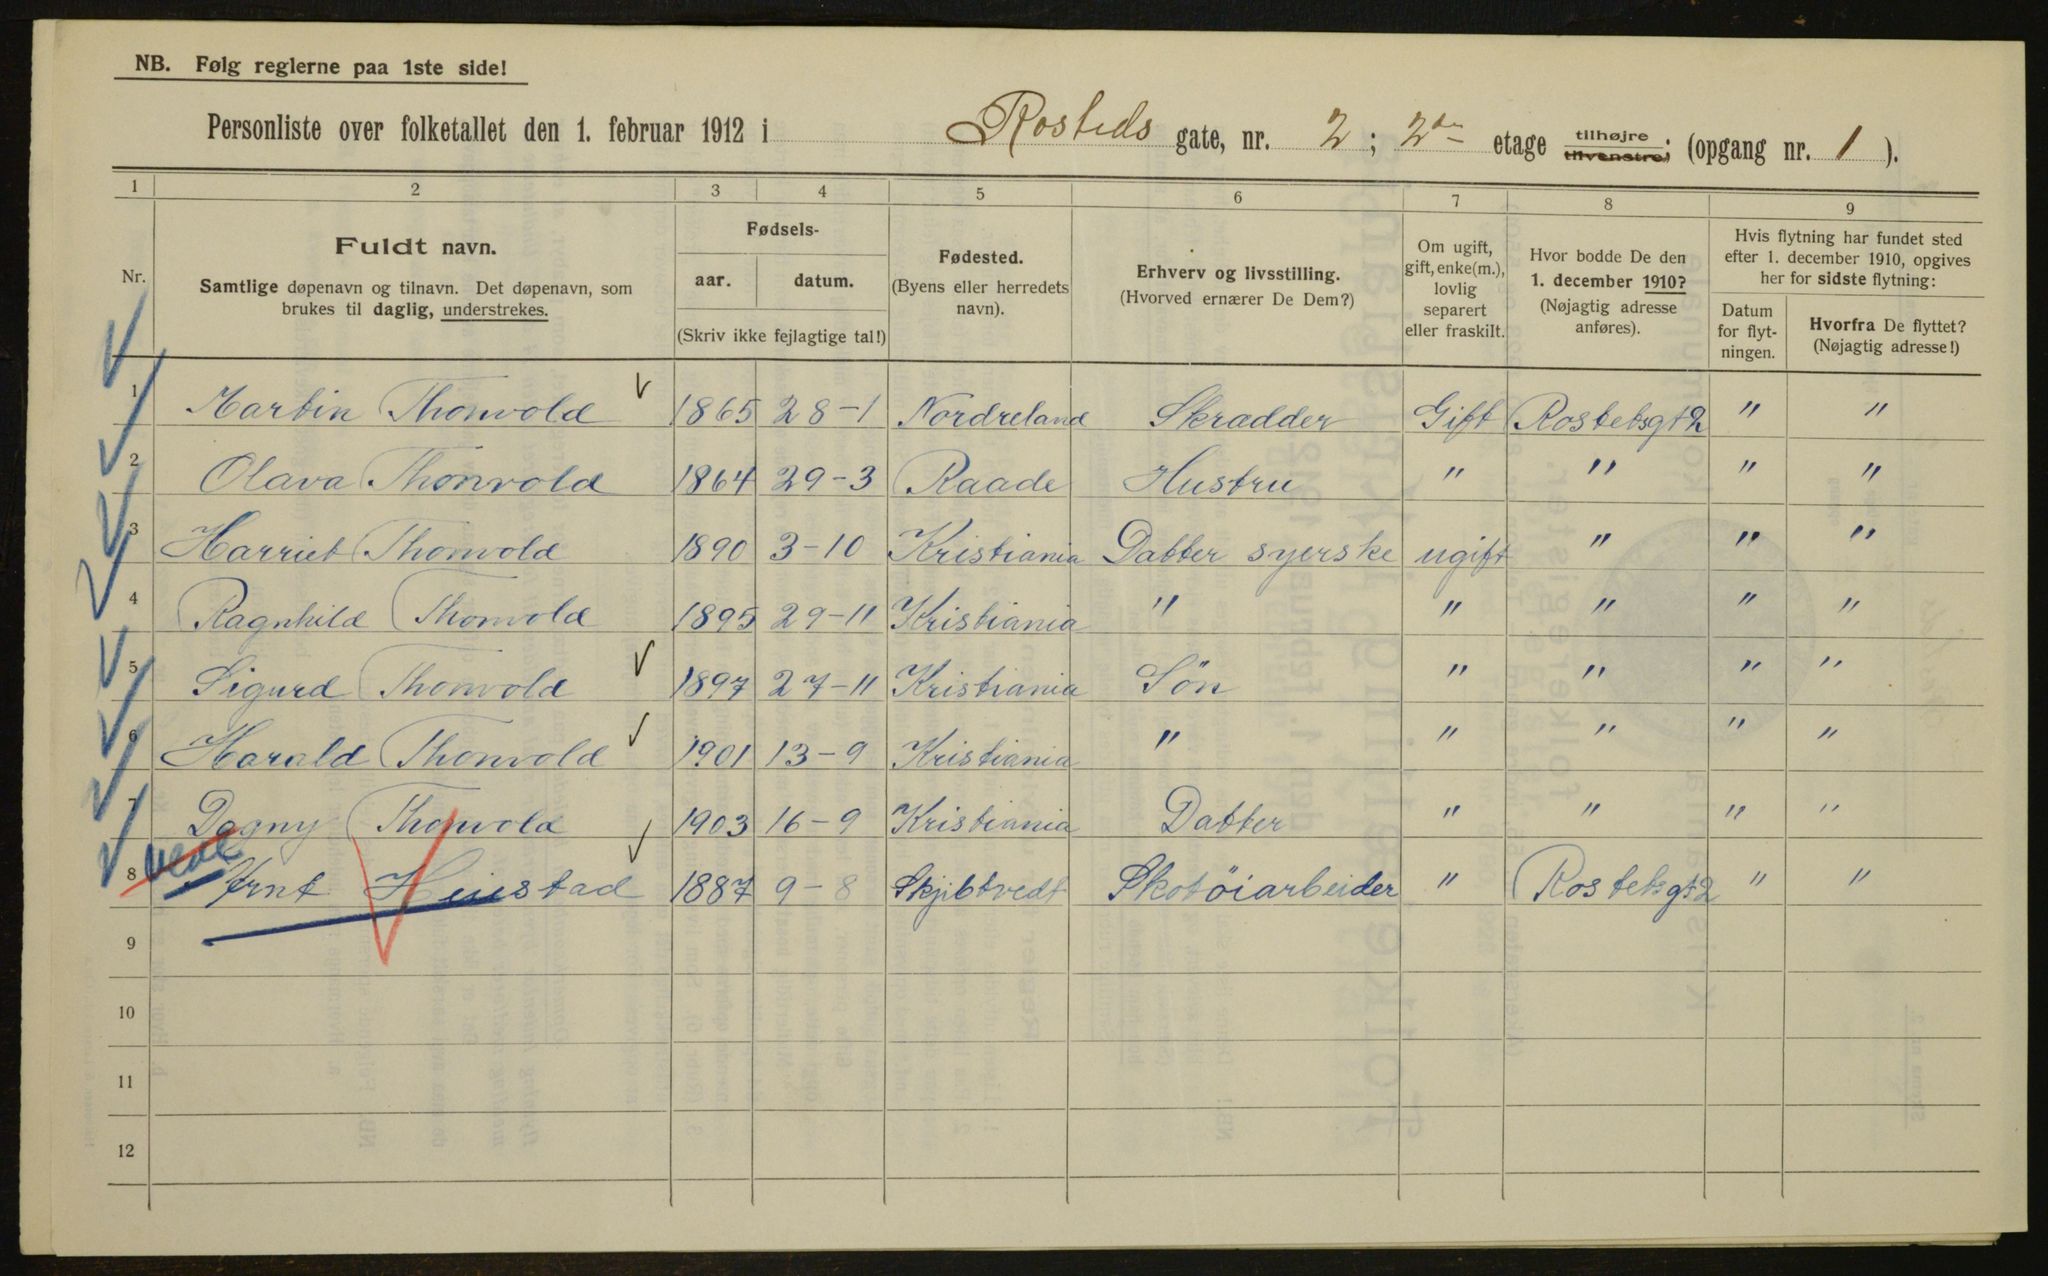 NB. Følg reglerne paa 1ste side!
Personliste over folketallet den 1. februar 1912 i Rosteds gate, nr. 2 ; 2den etage tilhøjre tilvenstre; (opgang nr. 1 ).
1 2 3 4 5 6 7 8 9
Nr.
Fuldt navn.
Samtlige døpenavn og tilnavn. Det døpenavn, som
brukes til daglig, understrekes.
Fødsels-
aar. datum.
(Skriv ikke fejlagtige tal!)
Fødested.
(Byens eller herredets
navn).
Erhverv og livsstilling.
(Hvorved ernærer De Dem?)
Om ugift,
gift, enke(m.),
lovlig
separert
eller fraskilt.
Hvor bodde De den
1. december 1910?
(Nøjagtig adresse
anføres).
Hvis flytning har fundet sted
efter 1. december 1910, opgives
her for sidste flytning:
Datum
for flyt-
ningen.
Hvorfra De flyttet?
(Nøjagtig adresse!)
1 Martin Thonvold 1865 28-1 Nordreland Skradder Gift Rostetsgt 2 " "
2 Olava Thonvold 1864 29-3 Raade Hustru " " " "
3 Harriet Thonvold 1890 3-10 Kristiania Datter syerske ugift " " "
4 Ragnhild Thonvold 1895 29-11 Kristiania " " " " "
5 Sigurd Thonvold 1897 27-11 Kristiania Sön " " " "
6 Harald Thonvold 1901 13-9 Kristiania " " " " "
7 Dagny Thonvold 1903 16-9 Kristiania Datter " " " "
8 Arnt Heiestad 1887 9-8 Skjibtvedt Skotöiarbeider " Rostetsgt 2 " "
9
10
11
12